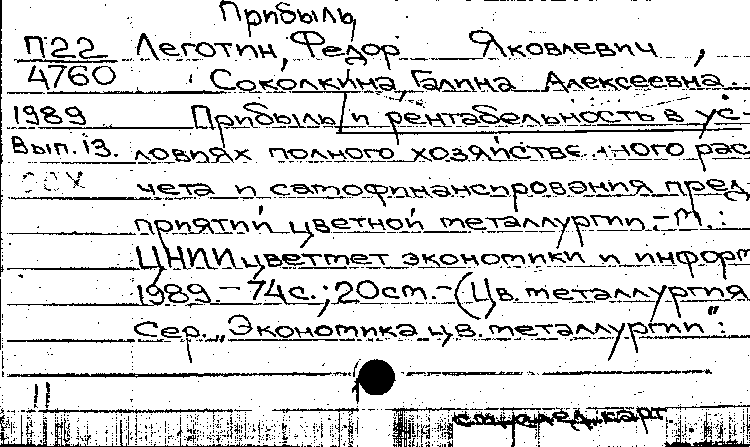 Прибыль
П22 Леготин, Федор Яковлевич,
4760 Соколкина, Галина Алексеевна.
1989 Прибыль и рентабельность в ус-
Вып. 13. ловиях полного хозяйстве нного рас
чета и самофинансирования пред
приятий цветной металлургии. - М.:
ЦНИИцветмет экономики и информ
1989. - 74с.; 20см. - (Цв. металлургия
Сер. „Экономика цв. металлургии":
11
см. след. карт